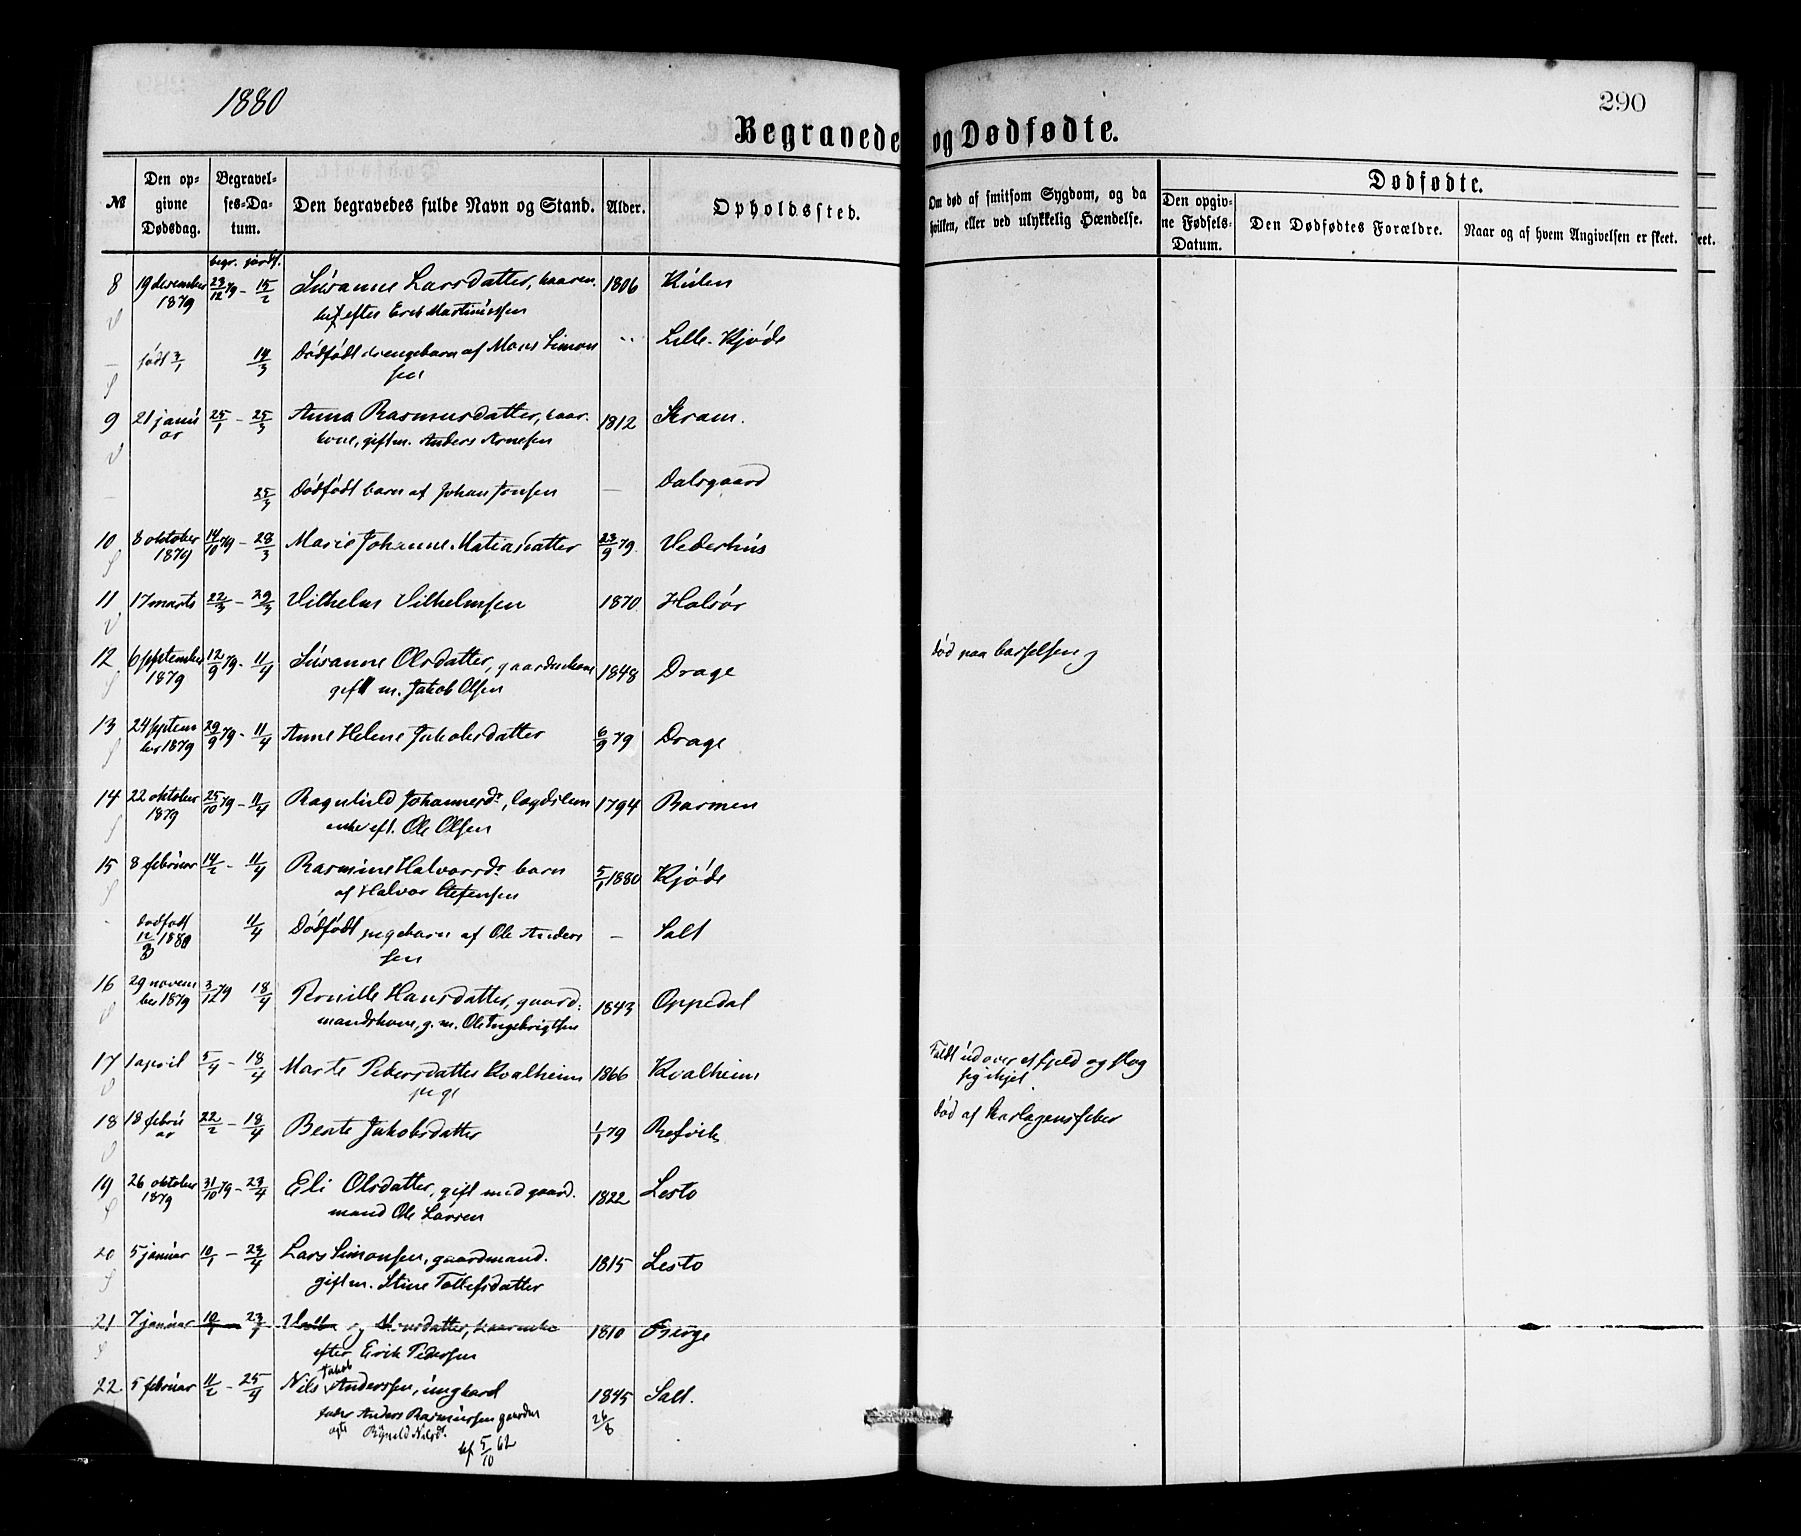 1880
290
Begravede og Dødfødte.
№
Den opgivne Dødsdag.
Begravelses-Datum.
Den begravedes fulde Navn og Stand.
Alder.
Opholdssted.
Om død af smitsom Sygdom, og da hvilken, eller ved ulykkelig Hændelse.
Dødfødte.
Den opgivne Fødsels-Datum.
Den Dødfødtes Forældre.
Naar og af hvem Angivelsen er skeet.
begr. jordf.
8 19 december 1879 23/12 79 - 15/2 Susanne Larsdatter, 1806 Kulen
efter Erik Martinussen
født 3/1 14/3 Dødfødt drengebarn af Mons Simonsen Lille-Kjøde
9 21 januar 25/1 - 25/3 Anna Rasmusdatter, 1812 Skram.
kone, gift m. Anders Arnesen
25/3 Dødfødt barn af Johan Jonsen — Dalsgaard
10 8 oktober 1879 14/10 79 - 28/3 Marie Johanne Matiasdatter 23/9 79 Vederhus
11 17 marts 22/3 - 29/3 Vilhelm Vilhelmsen 1870 Halsør
12 6 september 1879 12/9 79 - 11/4 Susanne Olsdatter, gaardmkone 1848 Drage død paa barselseng
gift m. Jakob Olsen
13 24 september 1879 29/9 79 - 11/4 Anne Helene Jakobsdatter 6/9 79 Drage
14 22 oktober 1879 25/10 79 - 11/4 Ragnhild Johannesdr, lægdslem 1794 Barmen
enke eft. Ole Olsen
15 8 februar 14/2 - 11/4 Rasmine Halvorsdr barn 5/1 1880 Kjøde
af Halvor Stefensen
dødfødt 12/3 1880 11/4 Dødfødt pigebarn af Ole Anderssen — Salt
16 29 november 1879 3/12 79 18/4 Pernille Hansdatter, gaardmandskone, g. m. Ole Ingebrigtsen 1843 Oppedal
17 1 april 5/4 - 18/4 Marte Pedersdatter Kvalheim 1866 Kvalheim Faldt ud over et fjeld og slog sig ihjel.
pige
18 18 februar 22/2 - 18/4 Berte Jakobsdatter 1/1 79 Refvik død af skarlagensfeber
19 26 oktober 1879 31/10 79 - 23/4 Eli Olsdatter, gift med gaardmand Ole Larsen 1822 Lesto
20 5 januar 10/1 - 23/4 Lars Simonsen, gaardmand. 1815 Lesto
gift m. Stine Tollefsdatter
21 7 januar 10/1 - 23/4 1810
efter Erik Pedersen
22 5 februar 11/2 - 25/4 Nils Jakob Anderssen, ungkarl 1845 Salt.
fader Anders Rasmussen gaardm 26/8
5/10 62